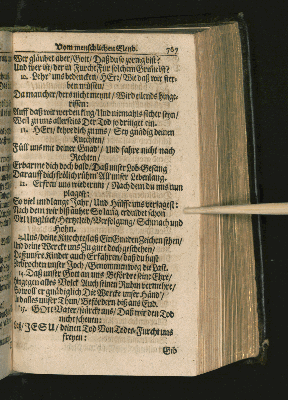 Vom menschlichen Elend. 767
Wer gläubet aber/ Gott/ Daß du so zornig bist?
Und wer ist/ der in Furcht Für solchem Grimm ist?
10. Lehr' uns bedencken/ HErr/ Wie daß wir ster-
ben müssen/
Da mancher/ ders nicht meynt/ Wird elends hinge-
rissen:
Auff daß wir werden klug/ Und niemahls sicher seyn/
Weil zu uns allerseits Der Tod so dringet ein.
11. HErr/ kehre dich zu uns/ Sey gnädig deinen
Knechten/
Füll uns mit deiner Gnad/ Und fahre nicht nach
Rechten/
Erbarme dich doch bald/ Daß unser Lob-Gesang
Darauff dich frölich rühm' All unser Lebenlang.
12. Erfreu uns wiederum/ Nach dem du uns nun
plagest;
So viel und lange Jahr/ Und Hülff uns versagest:
Nach dem wir bißanher So lang erduldet schon
Viel Unglück/ Hertzeleid/ Verfolgung/ Schmach und
Hohn.
uns/ deine Knechte/ laß Ein Gnaden Zeichen sehen/
deine Werck uns Zu gute doch geschehen/
Daß unsre Kinder auch Erfahren/ daß du hast
Zerbrochen unser Joch/ Genommen weg die Last.
14. Daß unser Gott an uns Beförder seine Ehre/
gegen alles Volck Auch seinen Ruhm vermehre/
Sowoll er gnädiglich Die Werck unser Händ/
alles unser Thun/ Befördern biß ans End.
15. GOtt Vater/ fürck aus/ Daß wir den Tod
nicht scheuen:
JESU/ deinen Tod Von Todes Furcht uns
freyen: